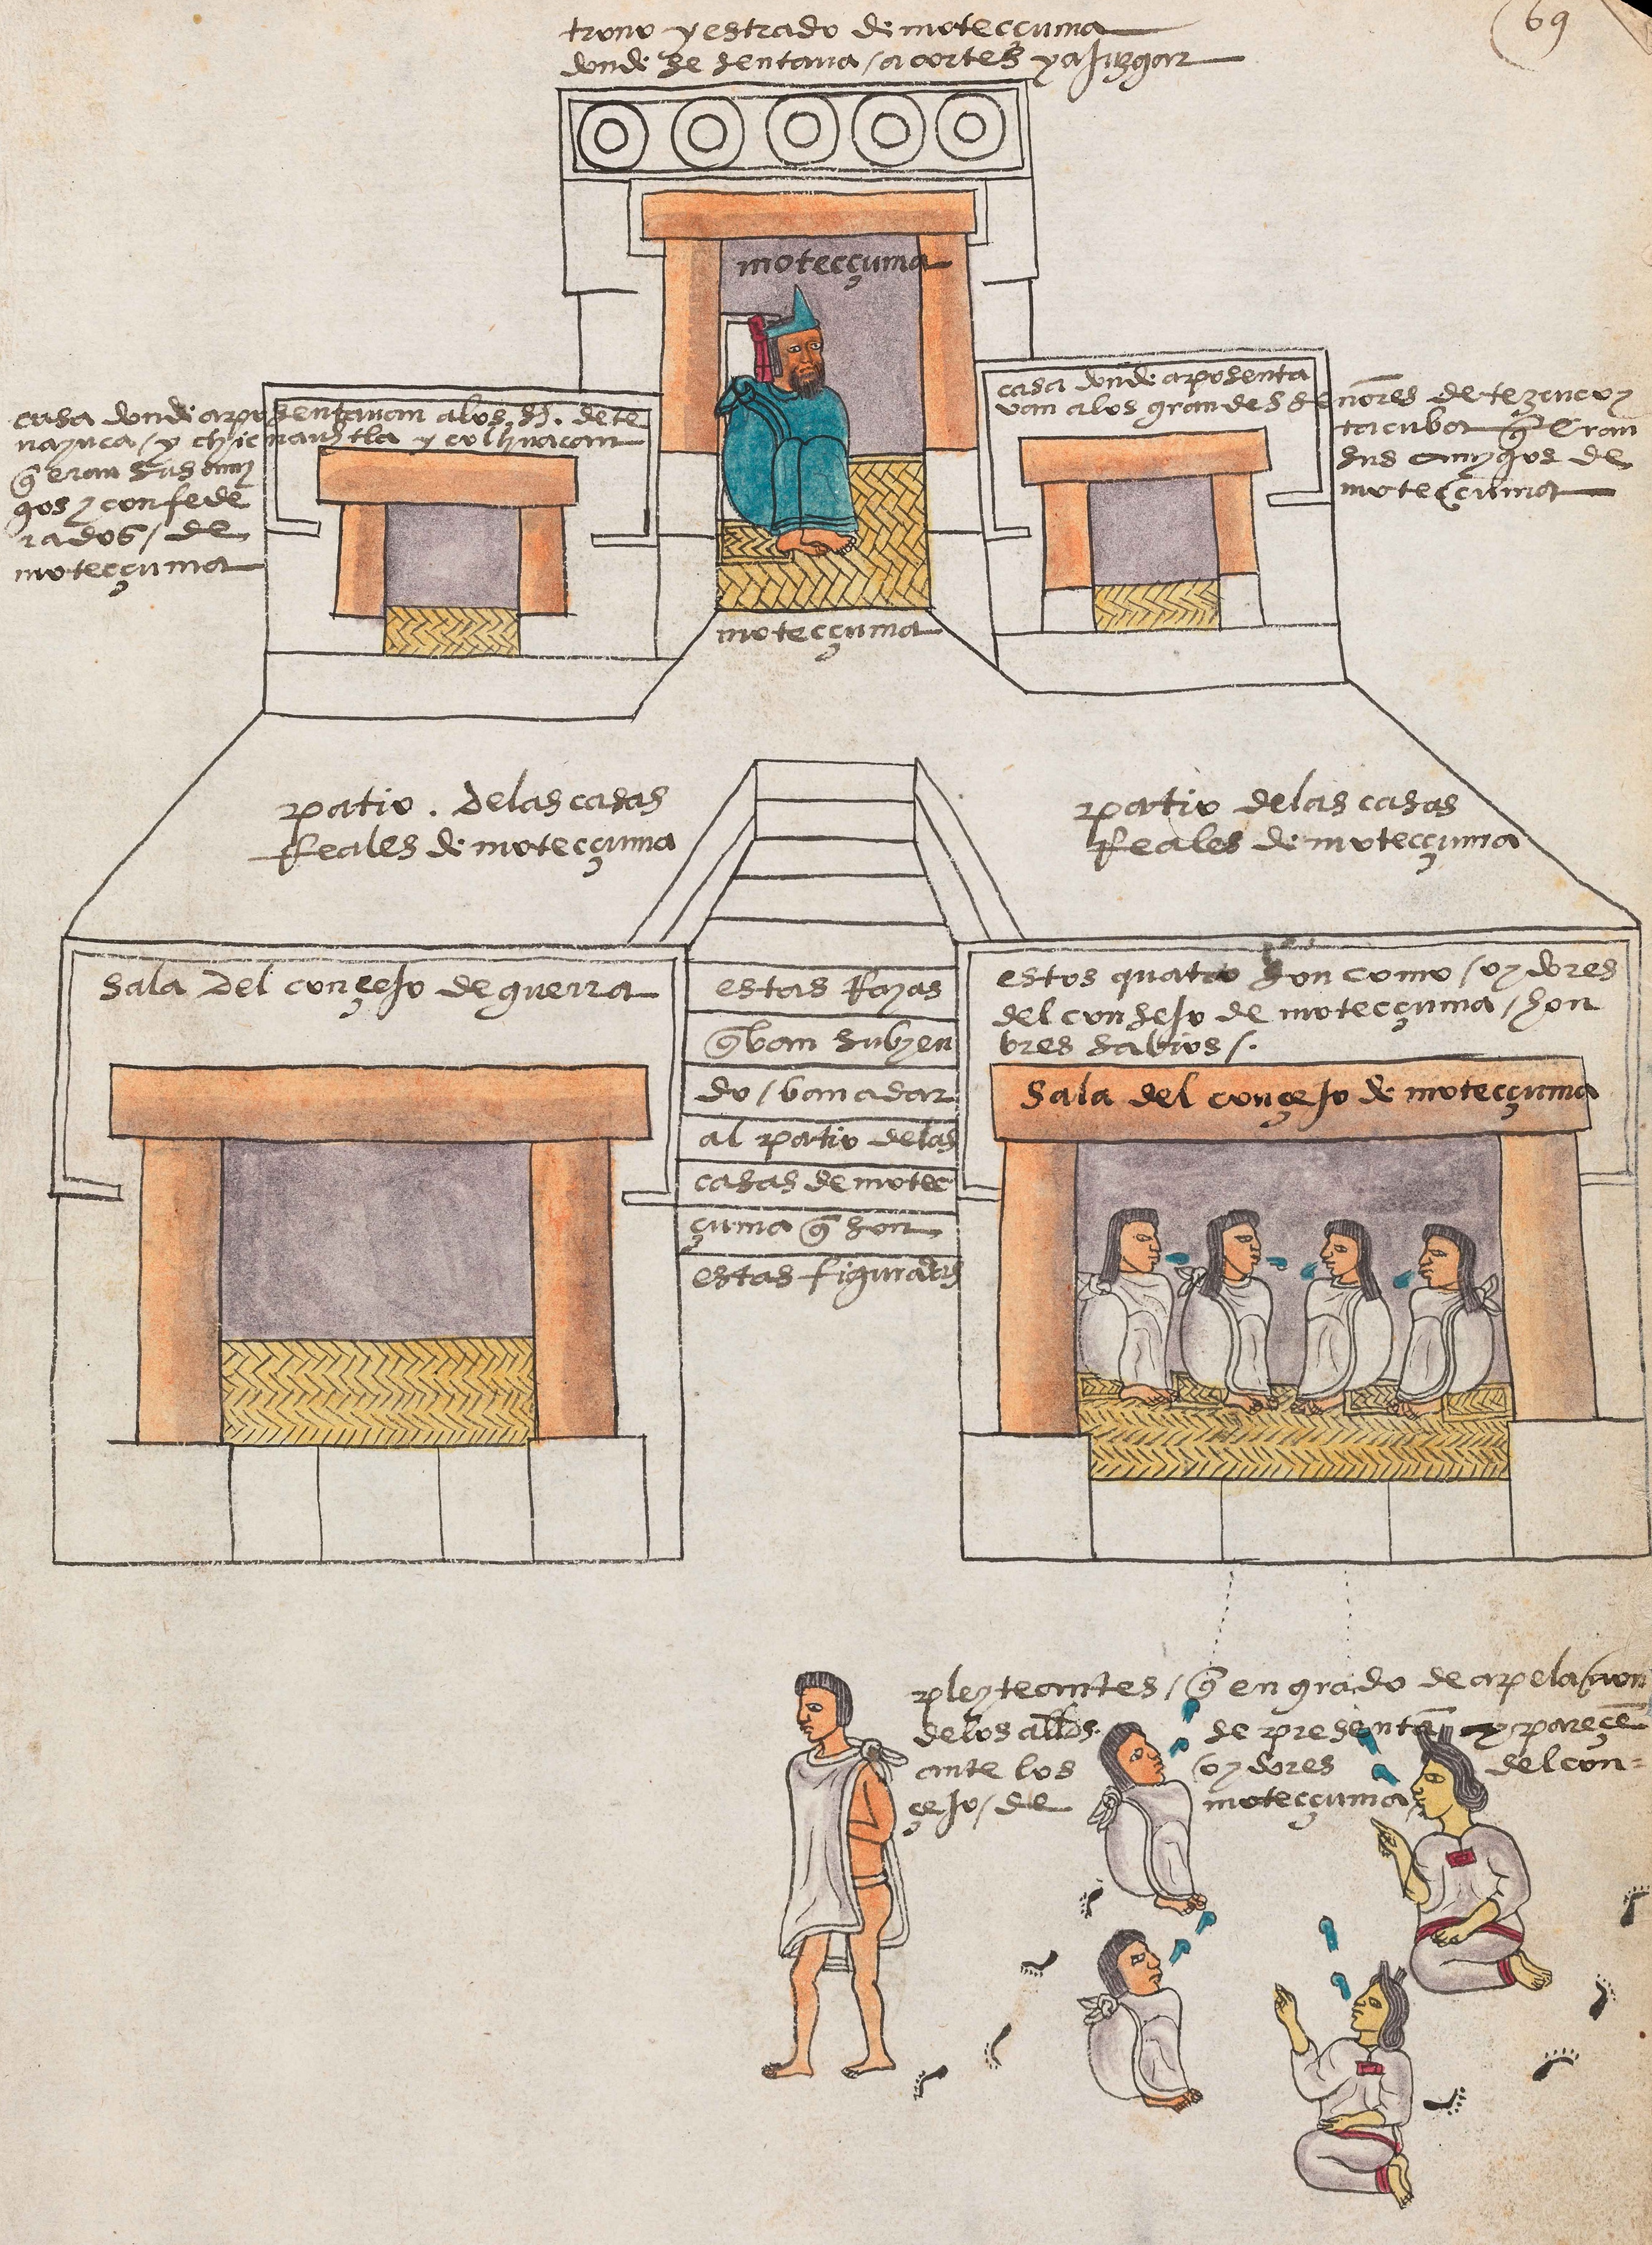 69
trono y estrado de moteccuma
donde se sentava / a cortes y a juzgar
moteccuma
casa donde aposentavan a los s̃s. de te
nayuca / y chicnauhtla y colhuacan
q̃ eran sus ami
gos y confede
rados / de
moteccuma
casa donde aposenta
van a los grandes señores de tezcuco y
tacuba q̃ eran
sus amygos de
moteccuma
moteccuma
patio . de las casas
Reales de motecçuma
patio de las casas
Reales de motecçuma
sala del conçejo de guerra
estas Rayas
q̃ van subyen
do / van a dar
al patio de las
casas de motec
çuma q̃ son
estas figuradas
estos quatro son como / oydores
del consejo de motecçuma / hon
bres sabios /.
sala del conçejo de motecçuma
pleyteantes / q̃ en grado de apelaçion
de los allds. se presentã y pareçẽ
ante los oydores del con=
çejo / de motecçuma